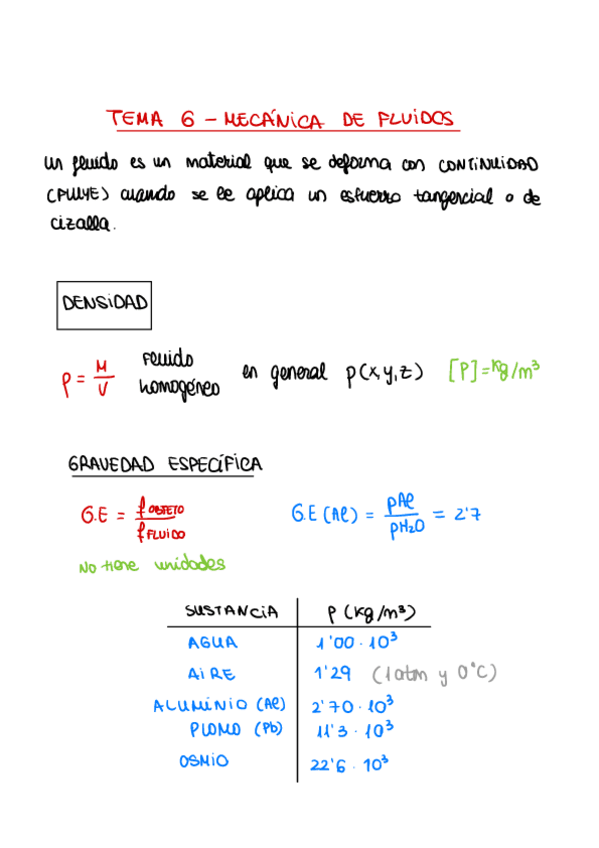 TEMA 6 - MECÁNICA DE FLUIDOS
un fluido es un material que se deforma con CONTINUIDAD
(FLUYE) cuando se le aplica un esfuerzo tangencial o de
cizalla.
DENSIDAD
ρ = M/V fluido homogéneo en general ρ(x,y,z) [ρ]=kg/m³
GRAVEDAD ESPECÍFICA
G.E = ρ OBJETO / ρ FLUIDO G.E (Al) = ρAl / ρH2O = 2'7
NO tiene unidades
SUSTANCIA ρ (kg/m³)
AGUA 1'00 · 10³
AIRE 1'29 (1 atm y 0°C)
ALUMÍNIO (Al) 2'70 · 10³
PLOMO (Pb) 11'3 · 10³
OSMIO 22'6 · 10³